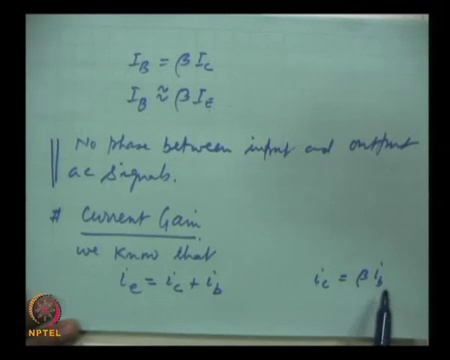 I_B = β I_C
I_B ≈ β I_E
No phase between input and output
ac signals.
# Current Gain
we know that
i_e = i_c + i_b    i_c = β i_b
NPTEL